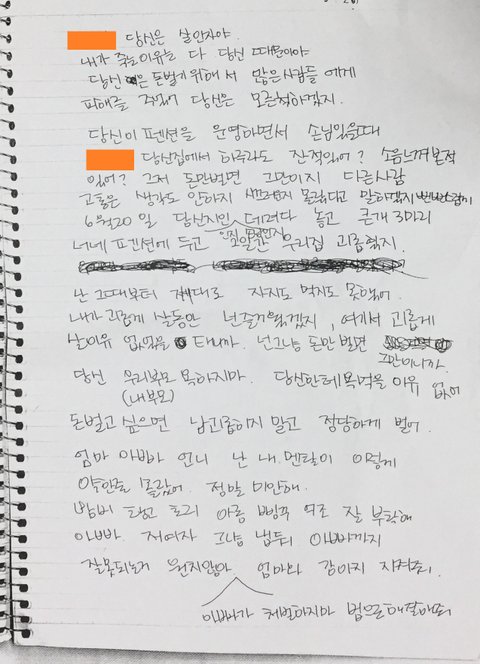 당신은 살인자야.
내가 죽는이유는 다 당신 때문이야
당신은 돈벌기위해서 많은사람들에게
피해를 주었어 당신은 모른척하겠지.
당신이 펜션을 운영하면서 손님있을때
당신집에서 하루라도 잔적있어? 소음느껴본적
있어? 그저 돈만벌면 그만이지 다른사람
고통은 생각도 안하지 몰랐다고 말하겠지
6월20일 당신지인 데려다 놓고 큰개 3마리
너네 펜션에 두고 우리집 괴롭혔지.
난 그때부터 제대로 자지도 먹지도 못했어.
내가 괴롭게 살동안 넌즐거웠겠지, 여기서 괴롭게
살이유 없었을 테니까. 넌그냥 돈만 벌면
그만이니까.
당신 우리부모 욕하지마. 당신한테욕먹을 이유 없어
(내부모)
돈벌고 싶으면 남괴롭히지 말고 정당하게 벌어.
엄마 아빠 언니 난 내멘탈이 이렇게
약한줄 몰랐어. 정말 미안해.
밤비 탄고 토리 아롱 잘 부탁해
아빠 저여자 그냥 냅둬 아빠까지
잘못되는거 원치않아 엄마와 강아지 지켜줘.
아빠가 처벌하지마 법으로해결해줘